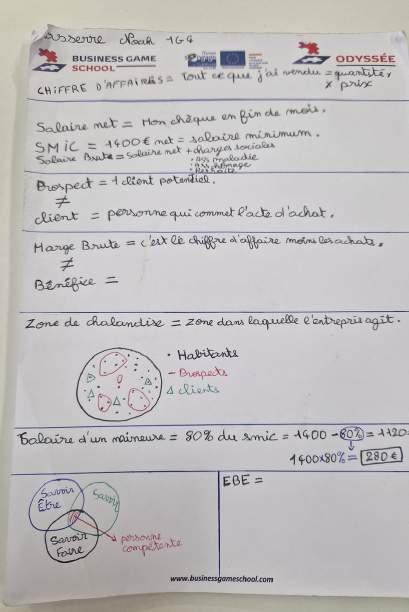 Noah 1G4
BUSINESS GAME SCHOOL
ODYSSÉE
CHIFFRE D'AFFAIRES = Tout ce que j'ai vendu = quantités
x prix
Salaire net = Mon chèque en fin de mois.
SMiC = 1400 € net = salaire minimum.
Salaire Brute = Salaire net + charges sociales
• ass maladie
• ass chomage
• Retraite
Prospect = 1 client potentiel.
≠
client = personne qui commet l'acte d'achat.
Marge Brute = c'est le chiffre d'affaire moins les achats.
≠
Bénéfice =
Zone de chalandise = zone dans laquelle l'entreprise agit.
• Habitants
- Prospects
Δ clients
Salaire d'un = 80% du smic = 1400 - 80% = 1120
1400x80% = 280 €
EBE =
Savoir Être
Savoir
Savoir Faire
personne
compétente
www.businessgameschool.com